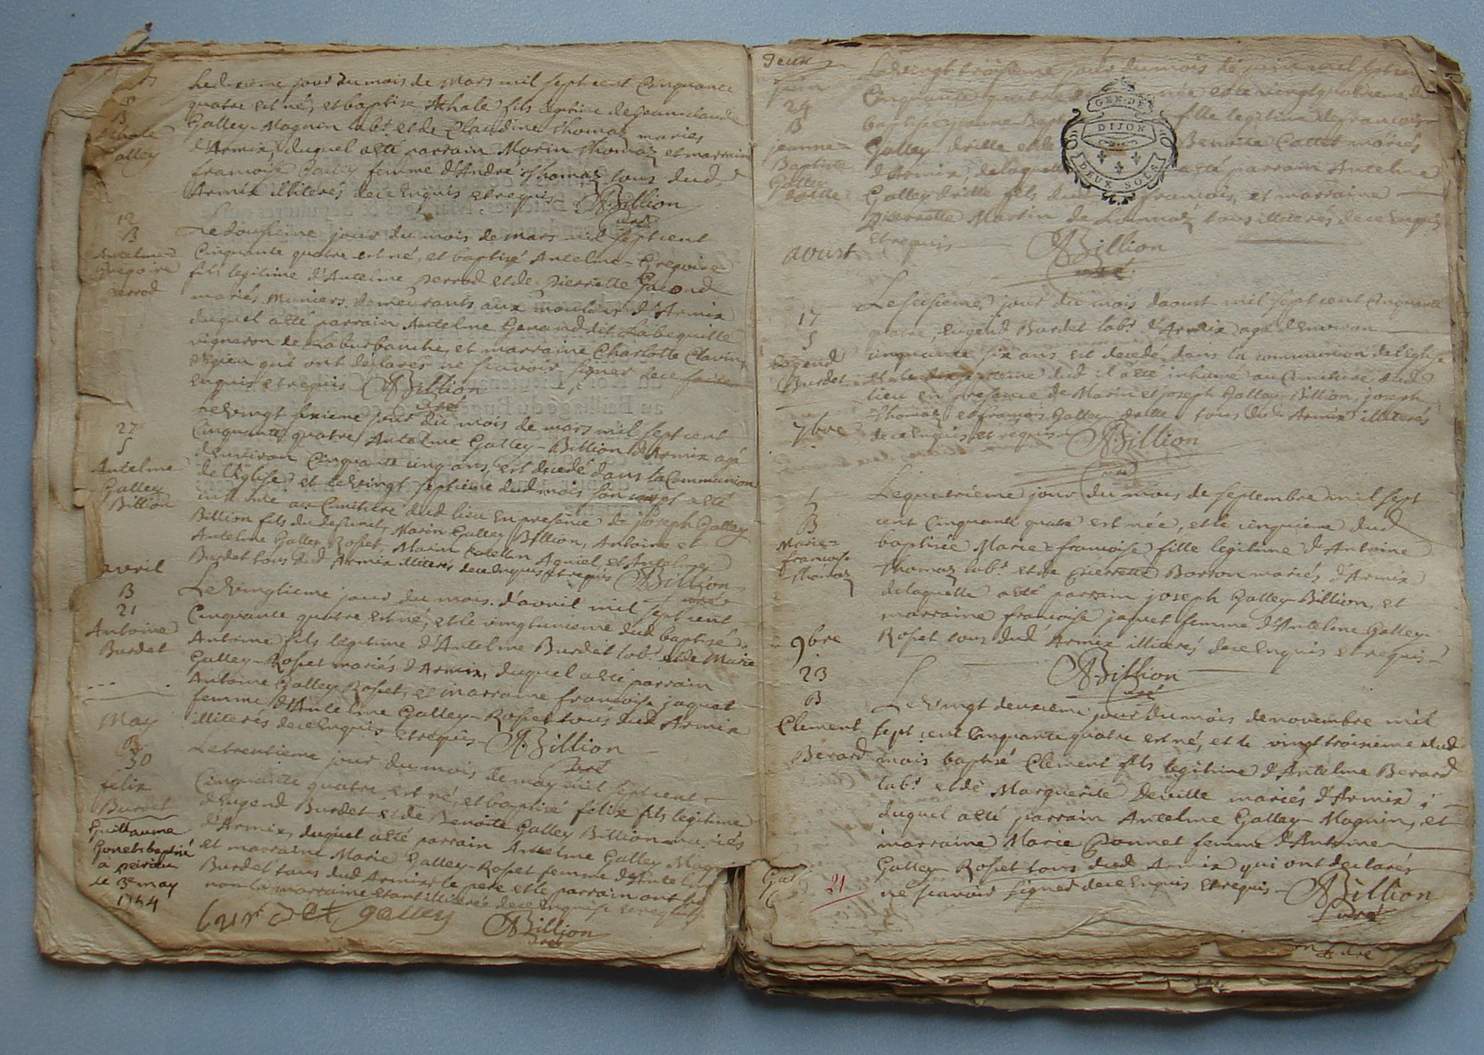 B
Athale
Galley
jour du mois de Mars mil sept cent Cinquante
quatre est né, et baptisé Athale fils de jeanclaude
Galley-Magnin labr. et de Claudine Thomas mariés
d'Armix, duquel a été parrain Marin Thomas et marraine
francoise Galley femme d'André Thomas tous dud.
Armix illiterés de ce Enquis et requis
ABillion
curé
12
B
Antelme
Gregoire
Perrod
Le douzieme jour du mois de mars mil sept cent
Cinquante quatre est né, et baptisé Antelme-Gregoire
fils legitime d'Antelme perrod et de pierrette Gacond
mariés, Muniers, demeurants aux moulins d'Armix
duquel a été parrain Antelme Genand dit Labequille
vigneron de et marraine Charlotte
qui ont declarés ne scavoir signer de ce faire
enquis et requis ABillion
curé
27
S
Antelme
Galley
Billion
Le vingt sixieme jour du mois de mars mil sept cent
Cinquante quatre, Antelme Galley-Billion d'Armix agé
d'environ Cinquante cinq ans, est decedé dans la Communion
de l'Eglise et le vingt septieme dud. mois son corps a été
inhumé au Cimitiere dud. lieu en presence de joseph Galley
Billion fils du defunct, Marin Galley Billion, Antoine et
Antelme Galley Rosset, Marin et Antelme
Burdet tous dud. Armix illiterés de ce enquis et requis ABillion
curé
avril
B
21
Antoine
Burdet
Le vingtieme jour du mois d'avril mil sept cent
Cinquante quatre est né, et le vingtunieme dud. baptisé
Antoine fils legitime d'Antelme Burdet labr. et de Marie
Galley-Roset mariés d'Armix, duquel a été parrain
Antoine Galley Roset, et marraine francoise jaquet
femme d'Antelme Galley-Roset tous dud. Armix
illiterés de ce Enquis et requis ABillion
curé
May
B
30
felix
Burdet
Le trentieme jour du mois de may mil sept cent
Cinquante quatre est né, et baptisé felix fils legitime
d'Eugend Burdet et de Benoite Galley Billion mariés
d'Armix, duquel a été parrain Antelme Galley
et marraine Marie Galley-Roset femme
Burdet tous dud. Armix, le pere et le parrain ont
non la marraine etant illiterée de ce enquise et requise
Guillaume
Gonet baptisé
a peirieu
le 3e may
1754
galley
ABillion
curé
juin
24
B
jeanne-
Baptiste
Galley
deville
Le vingt troisieme jour du mois de juin mil sept cent
Cinquante quatre est née et le vingt quatrieme
baptisée jeanne-Baptiste fille legitime de francois
Galley deville et de Benoite Cattet mariés
d'Armix, de laquelle a été parrain Antelme
Galley deville fils dud. francois, et marraine
pierrette Martin de tous illiterés de ce Enquis
et requis
ABillion
curé
GEN. DE
DIJON
DEUX SOLS
aoust
17
S
Eugend
Burdet
Le seizieme jour du mois d'aoust mil sept cent Cinquante
quatre, Eugend Burdet labr. d'Armix agé d'Environ
cinquante six ans est decedé dans la communion de l'Eglise
et le dix septieme dud. il a été inhumé au Cimitiere dud.
lieu en presence de Marin et joseph Galley-Billion, joseph
Thomas et francois Galley-deville tous dud. Armix illiterés
de ce Enquis et requis ABillion
curé
7bre
5
B
Marie-
francoise
Thomas
Le quatrieme jour du mois de septembre mil sept
cent Cinquante quatre est née, et le cinquieme dud.
baptisée Marie-francoise fille legitime d'Antoine
Thomas labr. et de Pierrette Borron mariés d'Armix
de laquelle a été parrain joseph Galley-Billion, et
marraine francoise jaquet femme d'Antelme Galley-
Roset tous dud. Armix illiterés de ce Enquis et requis
ABillion
curé
9bre
23
B
Clement
Berard
Le vingt deuxieme jour du mois de novembre mil
sept cent Cinquante quatre est né, et le vingt troisieme dud.
mois baptisé Clement fils legitime d'Antelme Berard
labr. et de Marguerite Deville mariés d'Armix
duquel a été parrain Antelme Galley-Magnin, et
marraine Marie Ponnet femme d'Antoine
Galley-Roset tous dud. Armix qui ont declarés
ne scavoir signer de ce Enquis et requis ABillion
curé
21